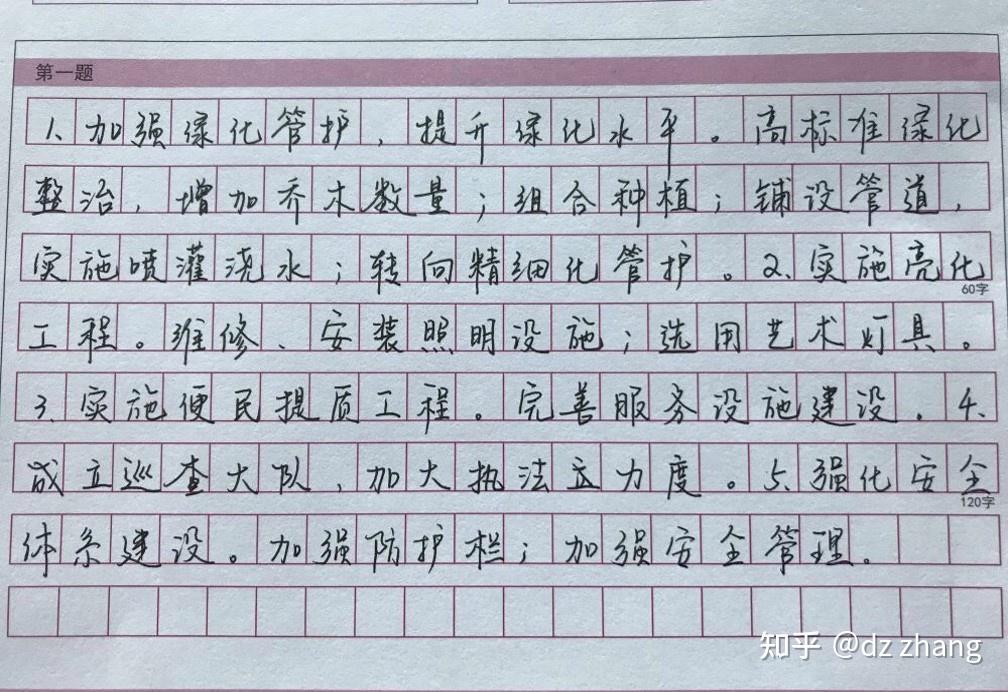 第一题
1、加强绿化管护，提升绿化水平。高标准绿化
整治，增加乔木数量；组合种植；铺设管道，
实施喷灌浇水；转向精细化管护。2、实施亮化
60字
工程。维修、安装照明设施；选用艺术灯具。
3、实施便民提质工程。完善服务设施建设。4、
成立巡查大队，加大执法力度。5、强化安全
120字
体系建设。加强防护栏；加强安全管理。
知乎 @dz zhang